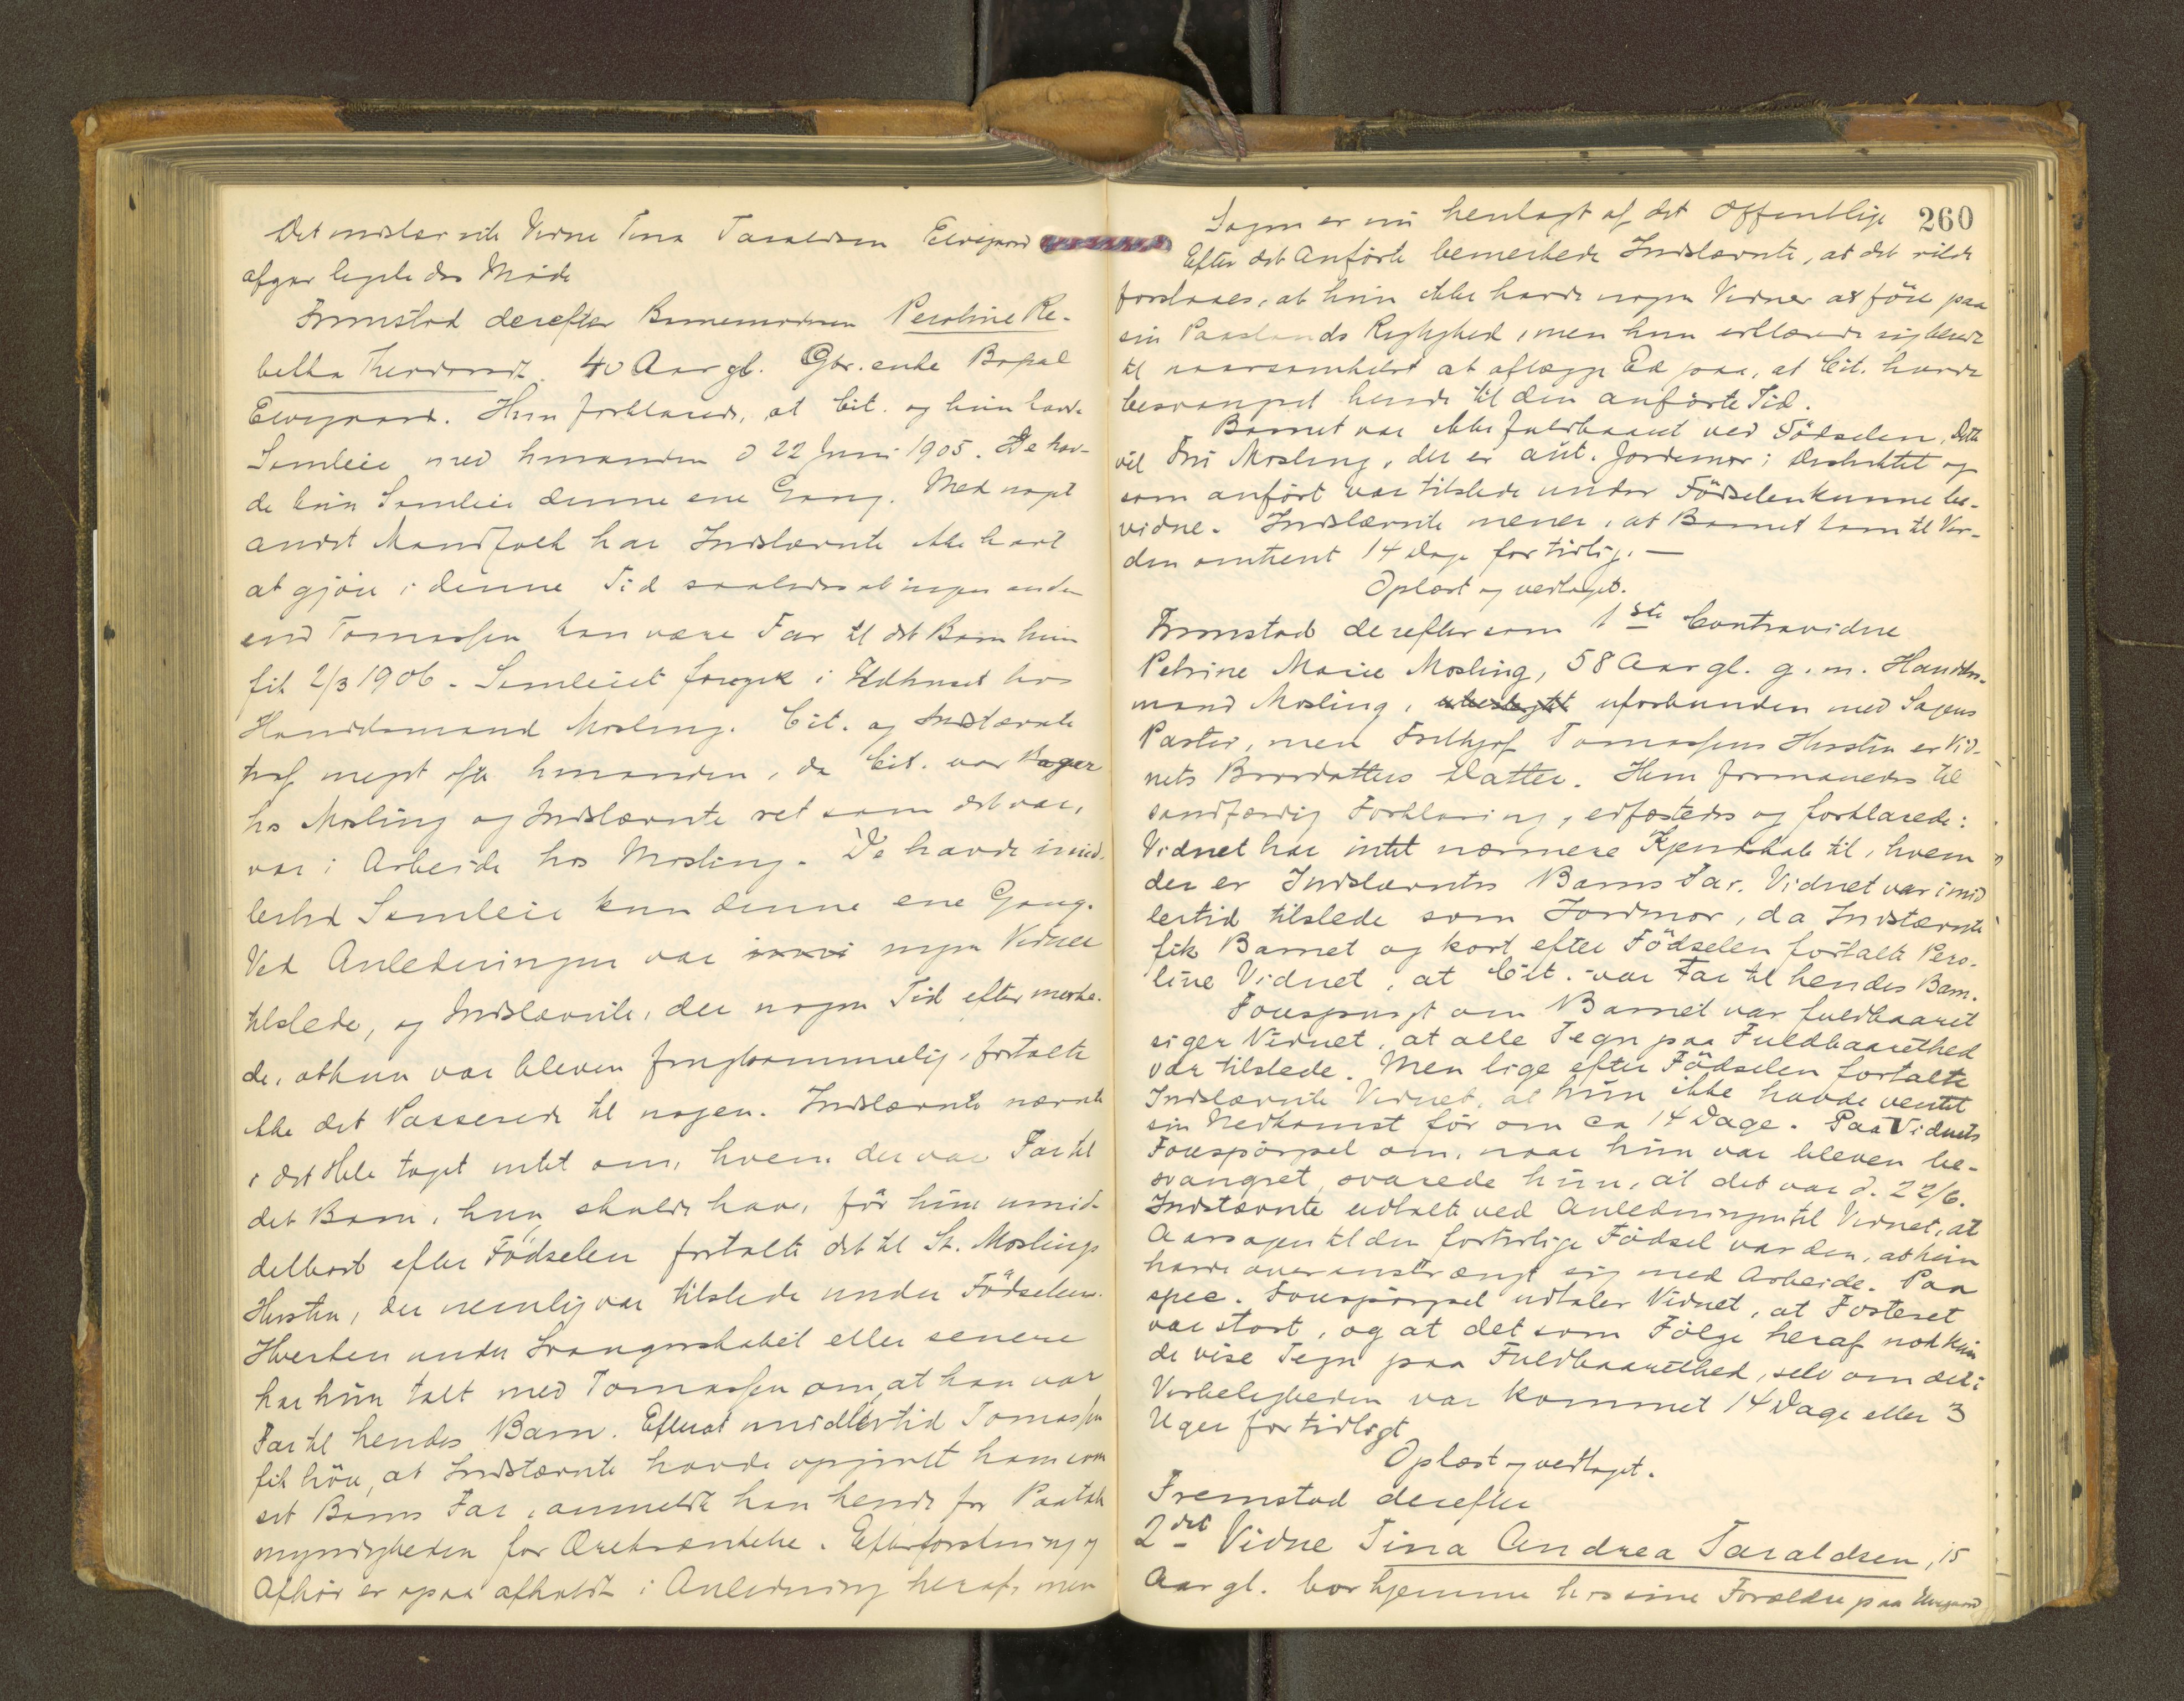 Det indstævnte Vidne Tina Taraldsen Elvegaard
afgav lignende Møde
Fremstod derefter Barnemoderen Peroline Re-
bekka 40 Aar gl. Gbr. enke Bopæl
Elvegaard. Hun forklarede, at Cit. og hun havde
Samleie med hinanden d 22 Juni 1905. De hav-
de kun Samleie denne ene Gang. Med noget
andet Mandfolk har Indstævnte ikke havt
at gjöre i denne Tid saaledes at ingen anden
end Tomassen kan være Far til det Barn hun
fik 2/3 1906. Samleiet foregik i Ildhuset hos
Handelsmand Mosling. Cit. og Indstævnte
traf meget ofte hinanden, da Cit. var Bager
hos Mosling og Indstævnte ret som det var,
var i Arbeide hos Mosling. De havde imid-
lertid Samleie kun denne ene Gang.
Ved Anledningen var nogen Vidner
tilstede, og Indstævnte, der nogen Tid efter mærke-
de, at hun var bleven frugtsommelig, fortalte
ikke det Passerede til nogen. Indstævnte nævnte
i det Hele taget intet om, hvem der var Far til
det Barn, hun skulde have, för hun umid-
delbart efter Födselen fortalte det til H. Moslings
Hustru, der nemlig var tilstede under Födselen.
Hverken under Svangerskabet eller senere
har hun talt med Tomassen om, at han var
Far til hendes Barn. Efterat imidlertid Tomassen
fik höre, at Indstævnte havde opgivet ham som
sit Barns Far, anmeldte han hende for Paatale
myndigheden for Ærekrænkelse. Efterforskning og
Afhör er ogsaa afholdt i Anledning heraf, men
260
Sagen er nu henlagt af det Offentlige
Efter det Anförte bemerkede Indstævnte, at det vilde
forstaaes, at hun ikke havde nogen Vidner at före paa
sin Paastands Rigtighed, men hun erklærede sig beredt
til naarsomhelst at aflægge Ed paa, at Cit. havde
besvangret hende til den anförte Tid.
Barnet var ikke fuldbaaret ved Födselen. Dette
vil Fru Mosling, der er aut. Jordemor i Distriktet og
som anfört var tilstede under Födselen kunne be-
vidne. Indstævnte mener, at Barnet kom til Ver-
den omtrent 14 Dage for tidlig. —
Oplæst og vedtaget.
Fremstod derefter som 1ste Contravidne
Petrine Marie Mosling, 58 Aar gl. g. m. Handels-
mand Mosling, ubeslegtet uforbunden med Sagens
Parter, men Fridthjof Tomassens Hustru er Vid-
nets Brordatters Datter. Hun formanedes til
sandfærdig Forklaring, edfæstedes og forklarede:
Vidnet har intet nærmere Kjendskab til, hvem
der er Indstævntes Barns Far. Vidnet var imid
lertid tilstede som Jordmor, da Indstævnte
fik Barnet og kort efter Födselen fortalte Pero-
line Vidnet, at Cit. var Far til hendes Barn.
Forespurgt om Barnet var fuldbaaret
siger Vidnet, at alle Tegn paa Fuldbaarethed
var tilstede. Men lige efter Födselen fortalte
Indstævnte Vidnet, at hun ikke havde ventet
sin Nedkomst för om ca 14 Dage. Paa Vidnets
Forespörgsel om, naar hun var bleven be-
svangret, svarede hun, at det var d. 22/6.
Indstævnte udtalte ved Anledningen til Vidnet, at
Aarsagen til den fortidlige Födsel var den, at hun
havde overanstrængt sig med Arbeide. Paa
spec. Forespörgsel udtaler Vidnet, at Fosteret
var stort, og at det som Fölge heraf nok kun
de vise Tegn paa Fuldbaarethed, selv om det i
Virkeligheden var kommet 14 Dage eller 3
Uger for tidligt
Oplæst og vedtaget.
Fremstod derefter
2det Vidne Tina Andrea Taraldsen, 15
Aar gl. bor hjemme hos sine Forældre paa Elvegaard